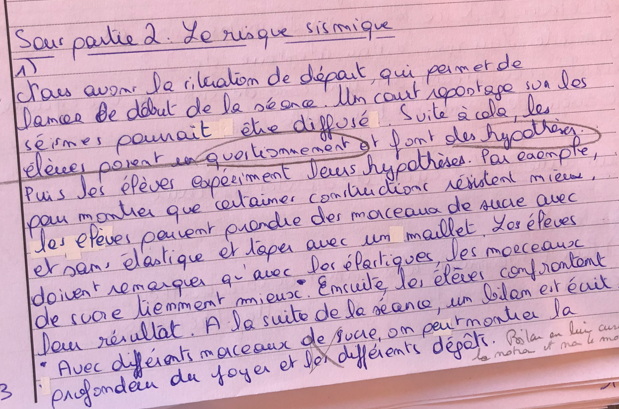 Sous partie 2. Le risque sismique
1)
Nous avons la situation de départ, qui permet de
lancer le début de la séance. Un court reportage sur les
séismes pourrait être diffusé. Suite à cela, les
élèves posent un questionnement et font des hypothèses.
Puis les élèves expériment leurs hypothèses. Par exemple,
pour montrer que certaines constructions résistent mieux,
les élèves peuvent prendre des morceaux de sucre avec
et sans élastique et taper avec un maillet. Les élèves
doivent remarquer qu'avec les élastiques, les morceaux
de sucre tiemment mieux • Ensuite, les élèves confrontent
leur résultat. A la suite de la séance, un bilan est écrit.
• Avec différents morceaux de sucre, on peut montrer la
profondeur du foyer et les différents dégâts. Bilan en lien
la notion et non le
3